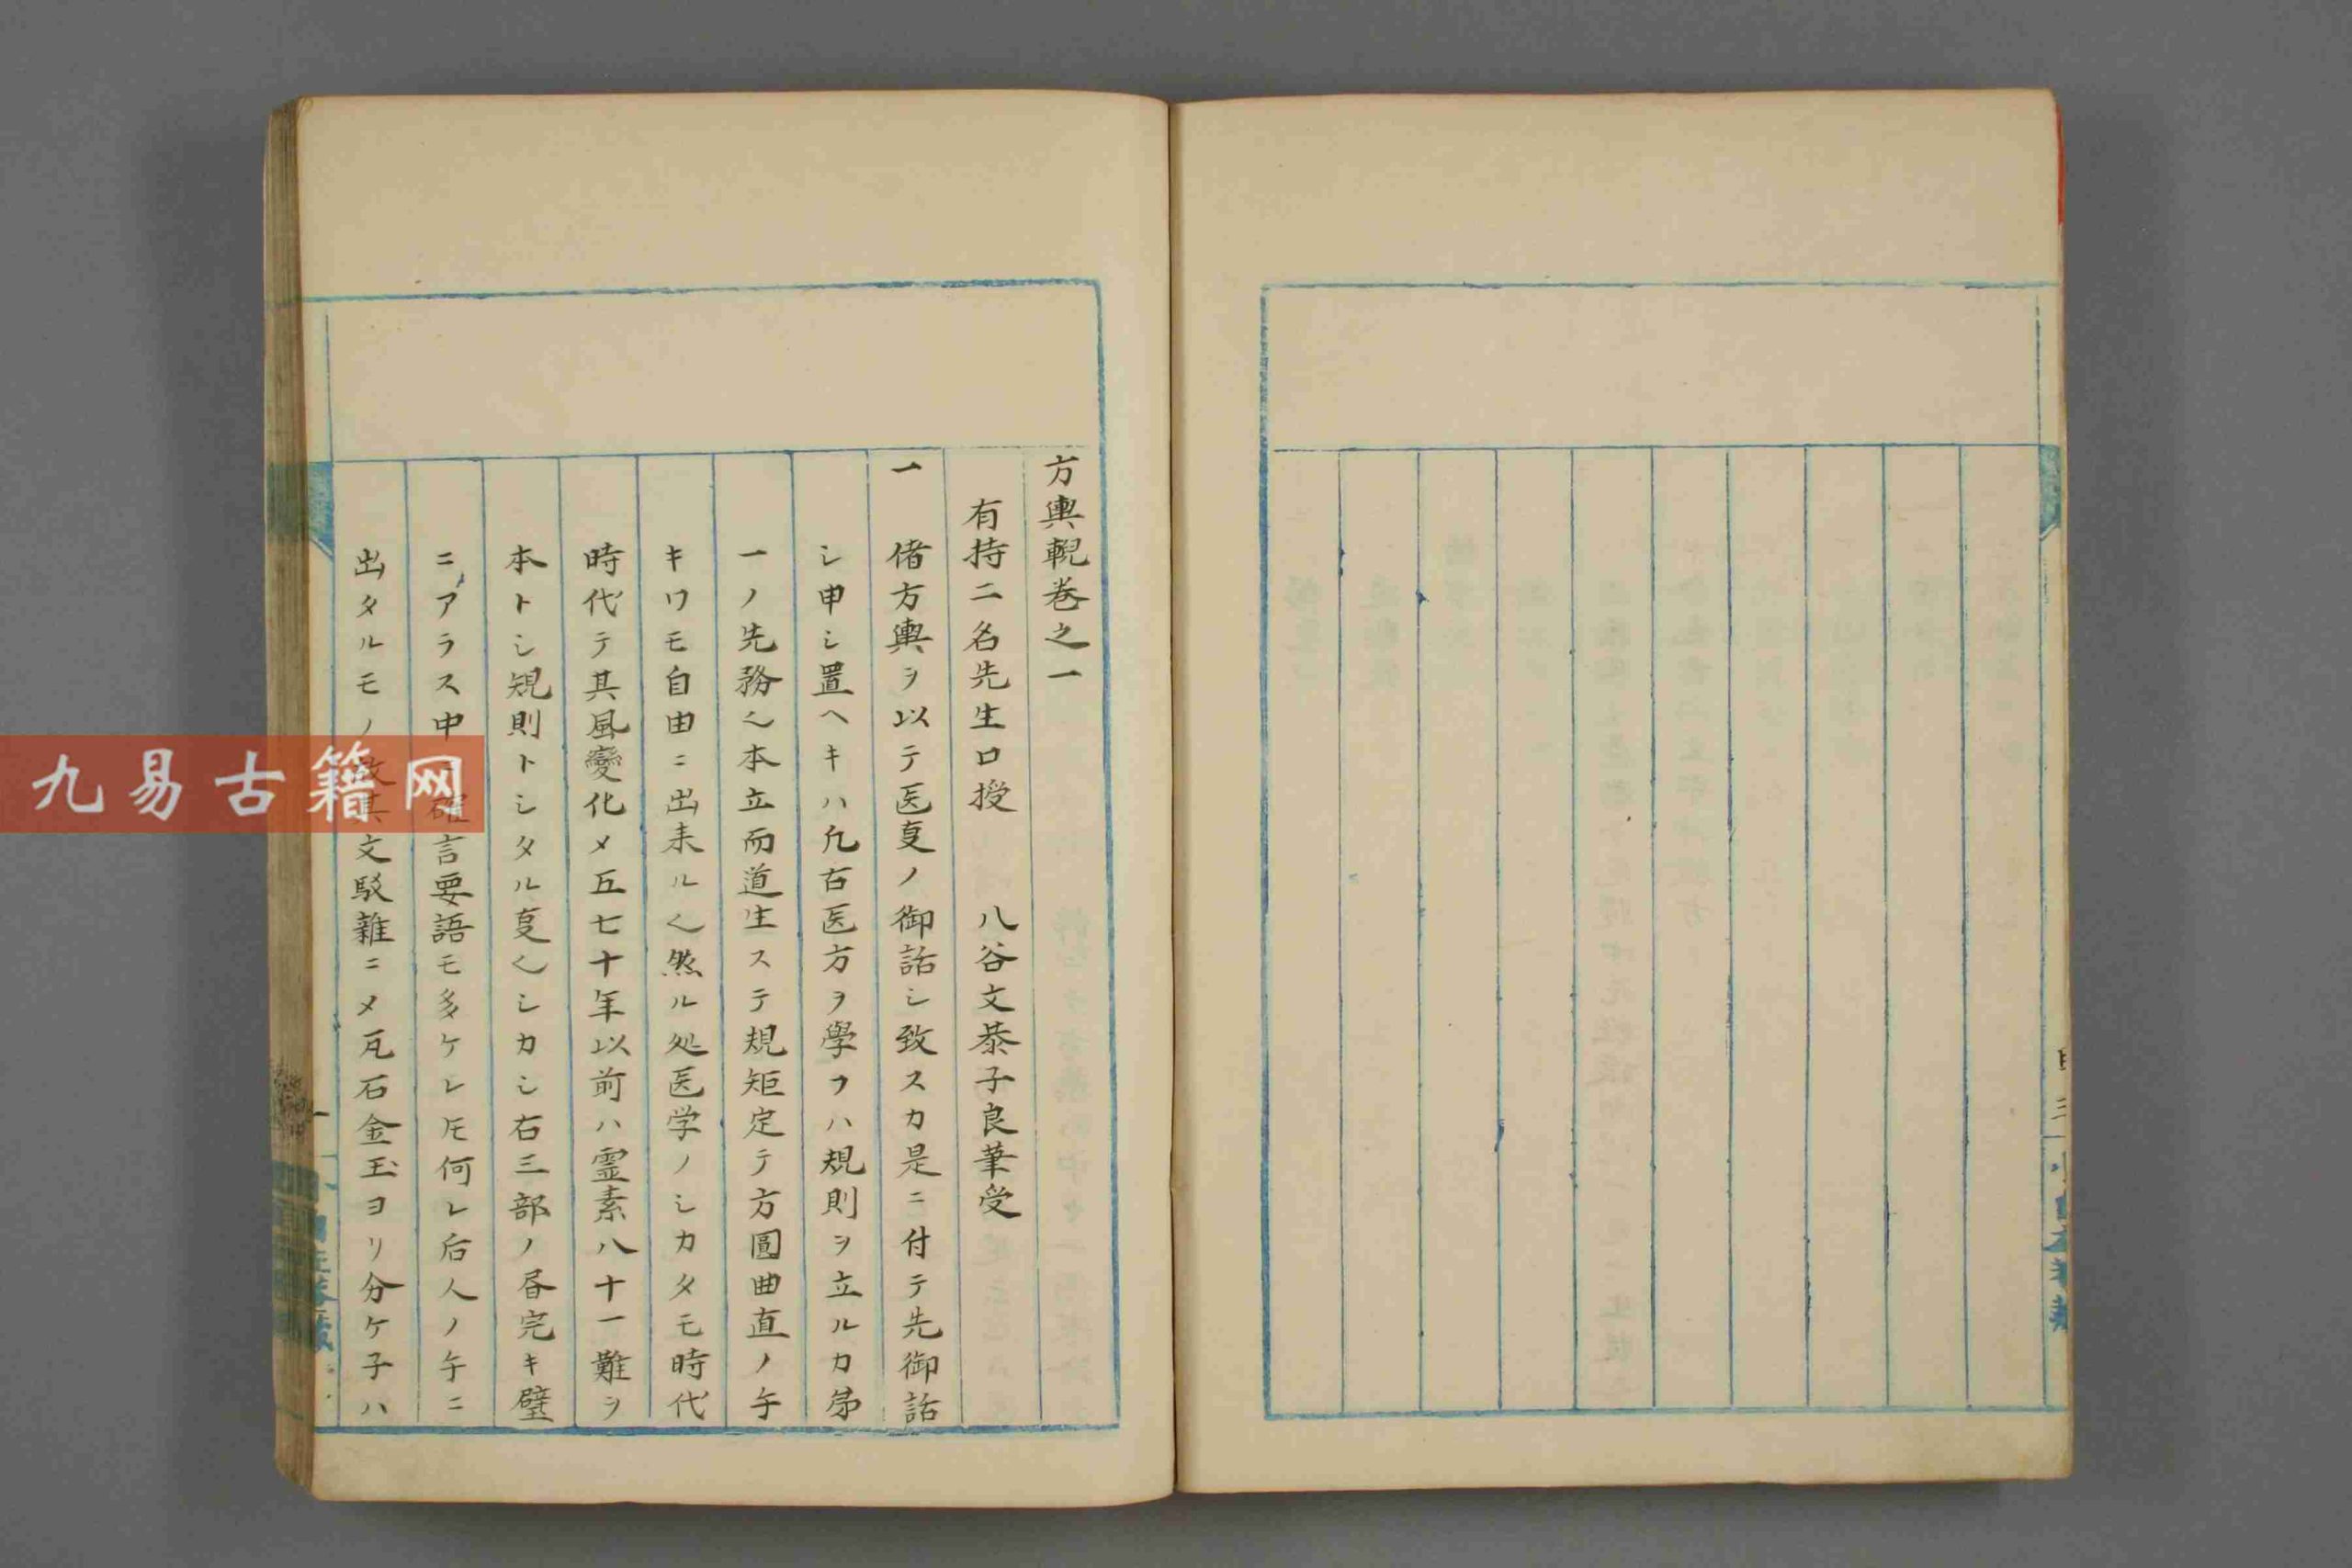 方輿輗巻之一
有持二名先生口授 八谷文恭子良筆受
一 偖方輿ヲ以テ医㕝ノ御話シ致スカ是ニ付テ先御話
シ申シ置ヘキハ凢古医方ヲ學フハ規則ヲ立ルカ㐧
一ノ先務〱本立而道生ステ規矩定テ方圓曲直ノ㐧
キワモ自由ニ出来ル〱然ル処医学ノシカタモ時代
時代テ其風變化メ五七十年以前ハ霊素八十一難ヲ
本トシ規則トシタル㕝〱シカシ右三部ノ昏完キ璧
ニアラス中 確言要語モ多ケレ𪜈何レ后人ノ手ニ
出タルモノ 文駁雜ニメ瓦石金玉ヨリ分ケ子ハ
九易古籍网